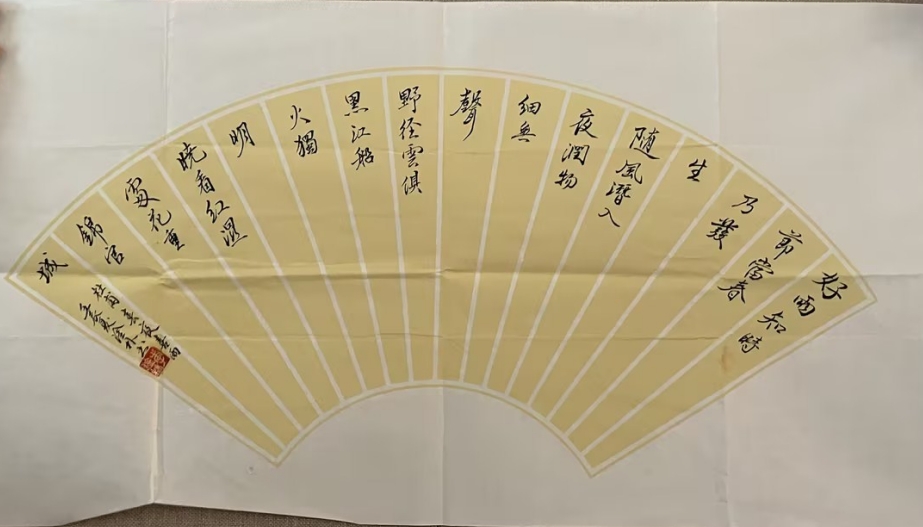 好雨知時
節當春
乃發
生
随風潛入
夜潤物
細無
聲
野径雲俱
黑江船
火獨
明
晓看红濕
處花重
錦官
城
杜甫春夜喜雨